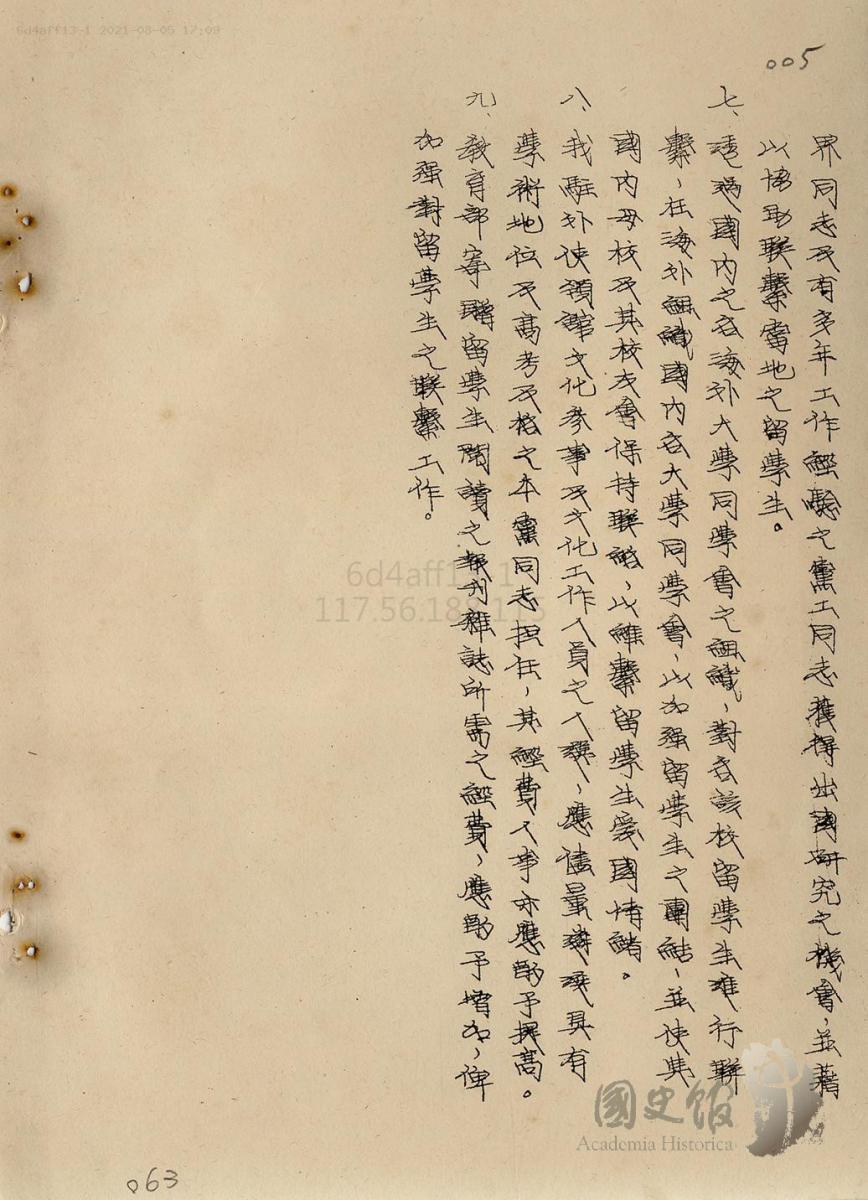 6d4aff13-1 2021-08-05 17:09
005
界同志及有多年工作經驗之黨工同志獲得出國研究之機會,並藉
以協助聯繫當地之留學生。
七、透過國內之各海外大學同學會之組織,對各該校留學生進行聯
繫,在海外組織國內各大學同學會,以加强留學生之團結,並使其
國內母校及其校友會保持聯絡,以維繫留學生愛國情緒。
八、我駐外使領館文化參事及文化工作人員之人選,應儘量遴選具有
學術地位及高考及格之本黨同志担任,其經費人事亦應酌予提高。
九、教育部寄贈留學生閱讀之報刊雜誌所需之經費,應酌予增加,俾
加强對留學生之聯繫工作。
6d4aff13-1
國史館
Academia Historica
063